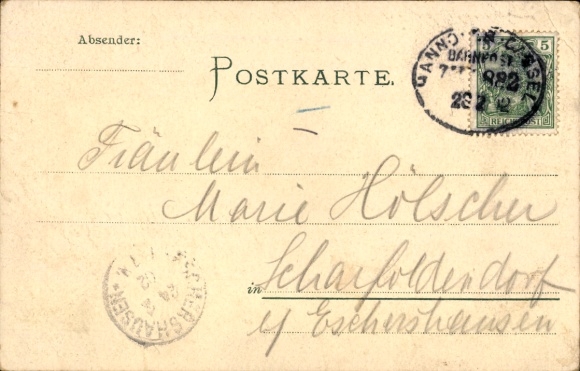 Absender:
POSTKARTE.
HANNOVER CASSEL
BAHNPOST
882
5
REICHSPOST
Fräulein
Marie Hölscher
in Scharfoldendorf
b/ Eschershausen
ESCHERSHAUSEN